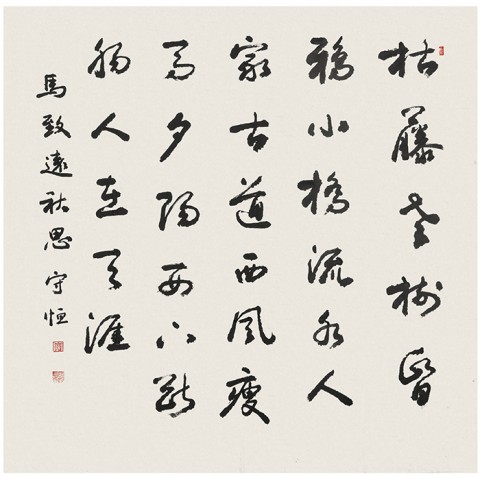 枯藤老樹昏
鴉小橋流水人
家古道西風瘦
馬夕陽西下斷
腸人在天涯
馬致遠秋思 守恒